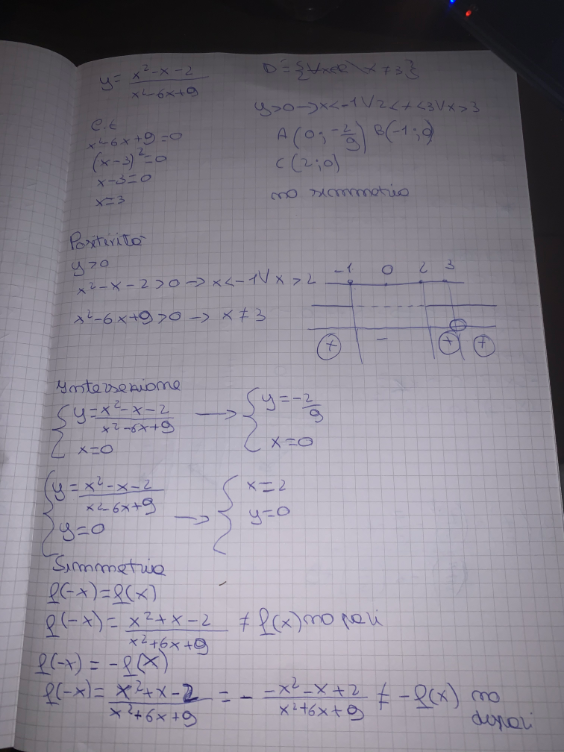 y = x²-x-2 / x²-6x+9
D = {∀x∈R \ x≠3}
y>0 → x<-1 V 2<x<3 V x>3
C.E
x²-6x+9=0
A(0;-2/9) B(-1;0)
(x-3)²=0
C(2;0)
x-3=0
x=3
no simmetria
Positività
y>0
x²-x-2>0 → x<-1 V x>2
-1 0 2 3
x²-6x+9>0 → x≠3
+ - + +
Intersezione
{ y = x²-x-2 / x²-6x+9 → { y = -2/9
x=0 x=0
{ y = x²-x-2 / x²-6x+9 → { x=2
y=0 y=0
Simmetria
f(-x)=f(x)
f(-x) = x²+x-2 / x²+6x+9 ≠ f(x) no pari
f(-x) = -f(x)
f(-x) = x²+x-2 / x²+6x+9 = - -x²-x+2 / x²+6x+9 ≠ -f(x) no
dispari